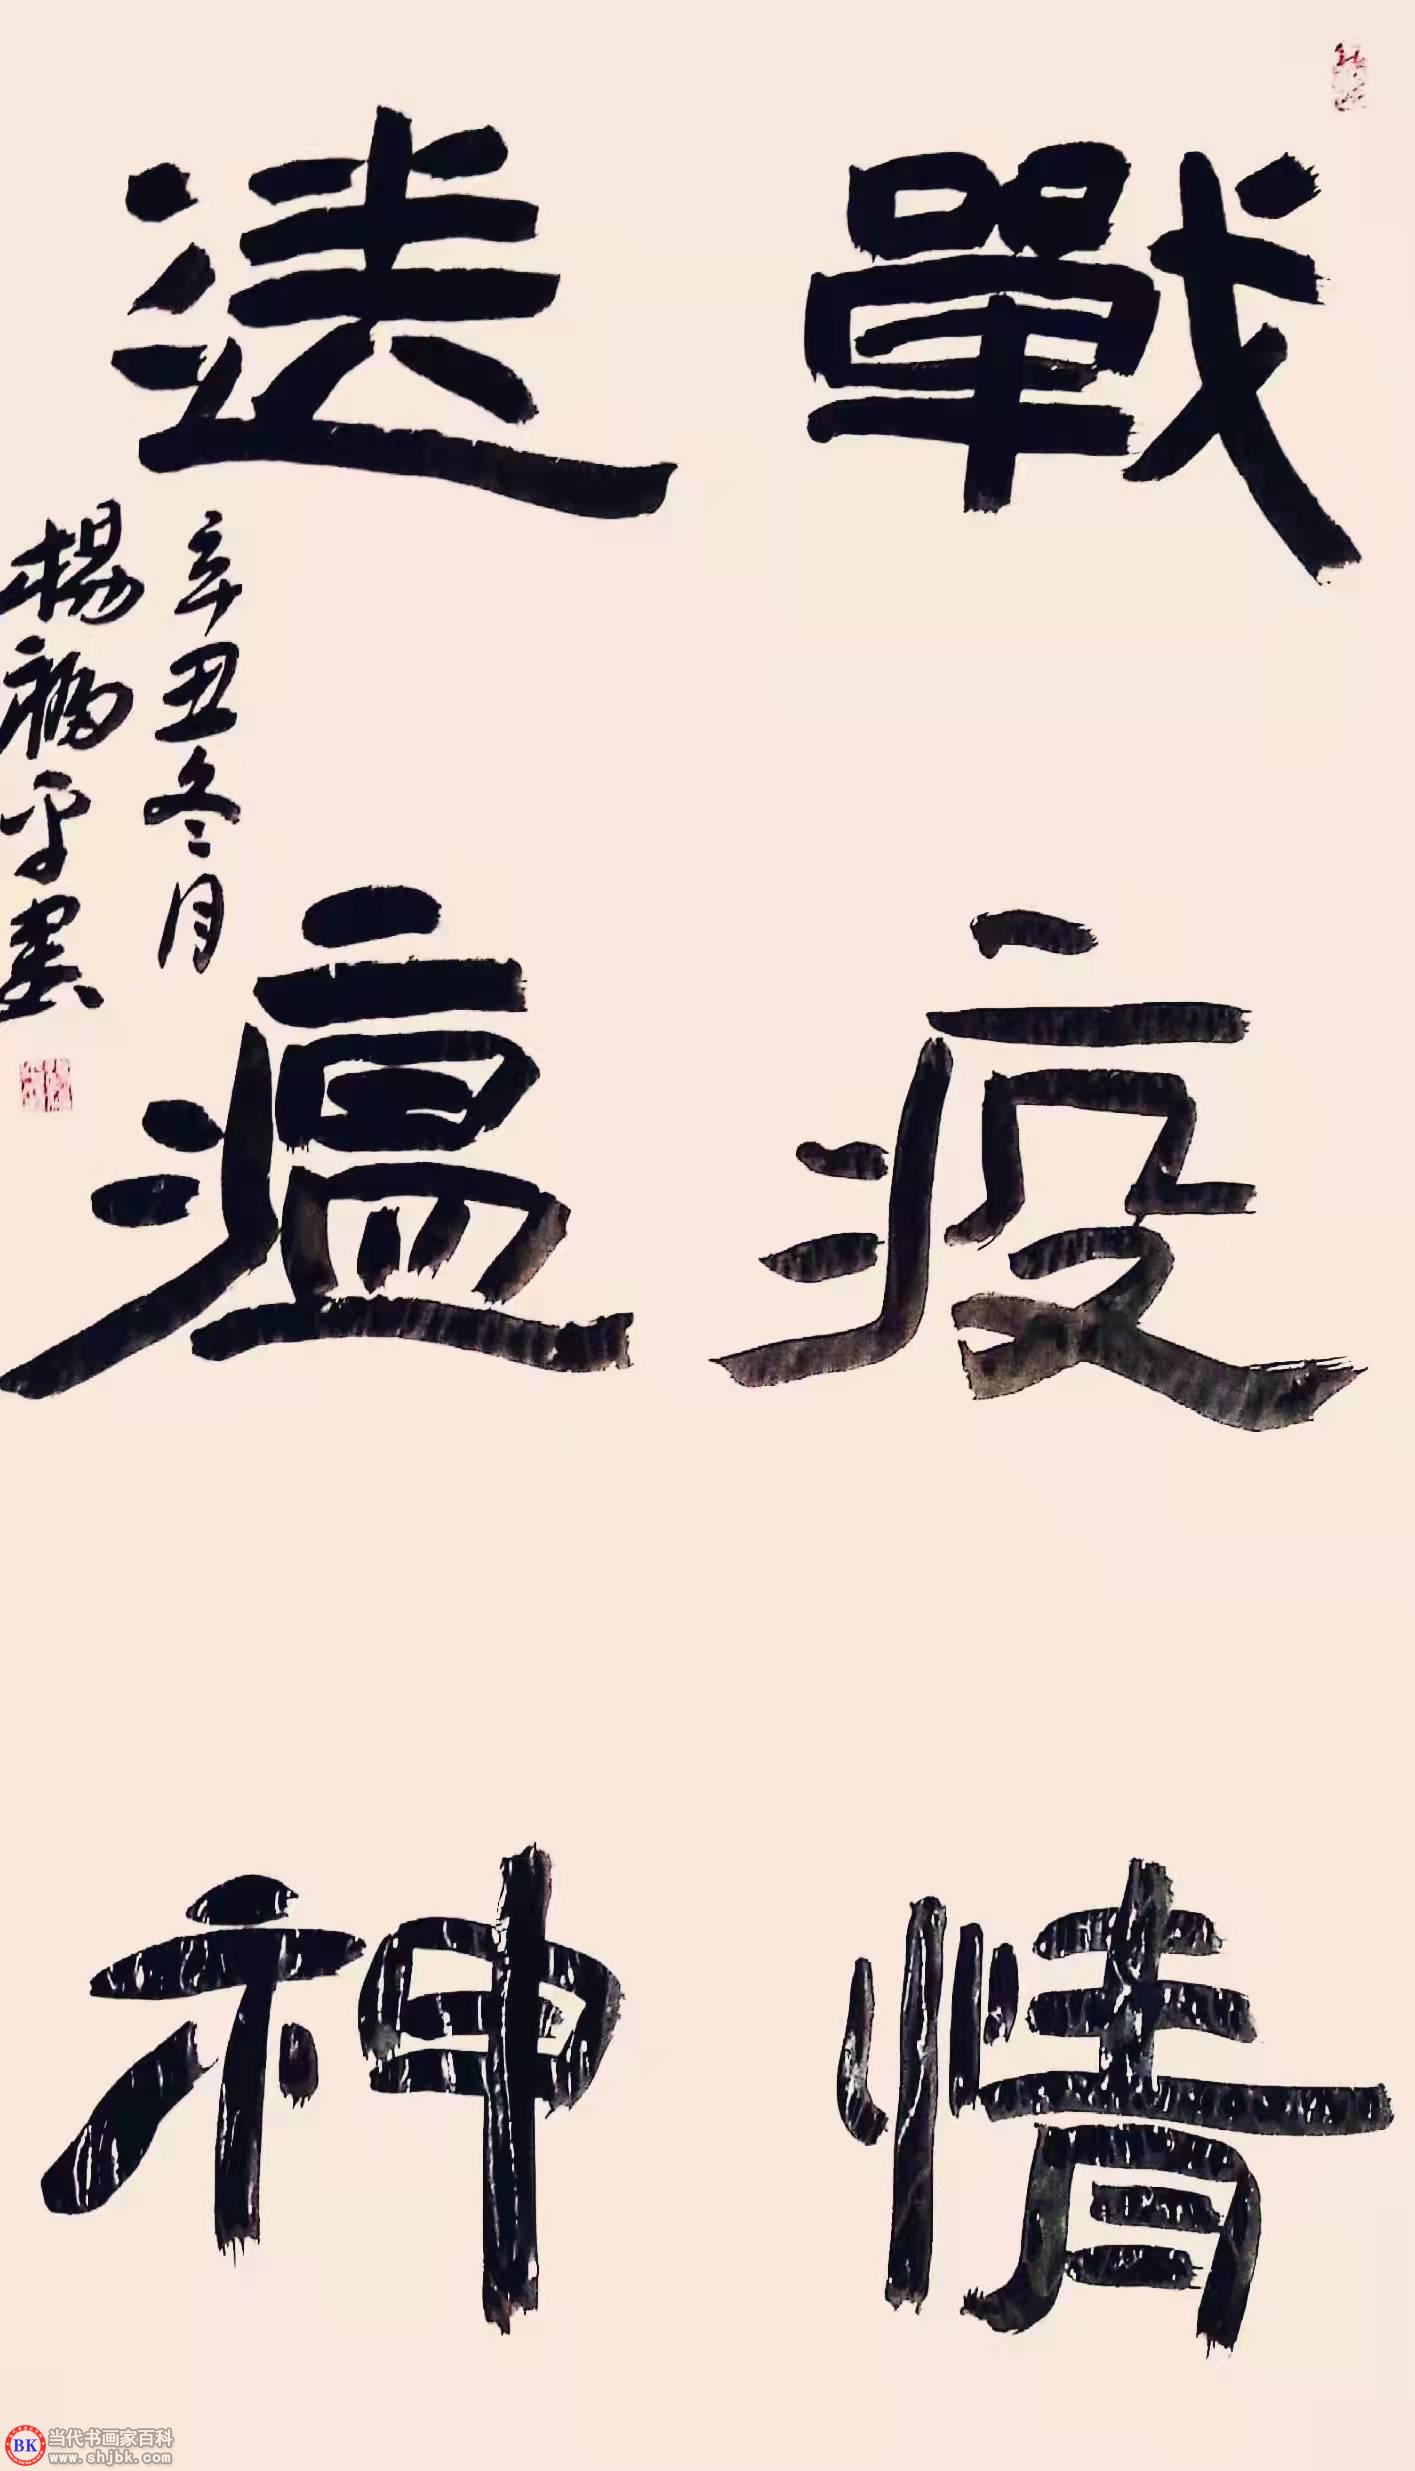 戰疫情
送瘟神
辛丑冬月
楊福平書
当代书画家百科
BK
www.shjbk.com